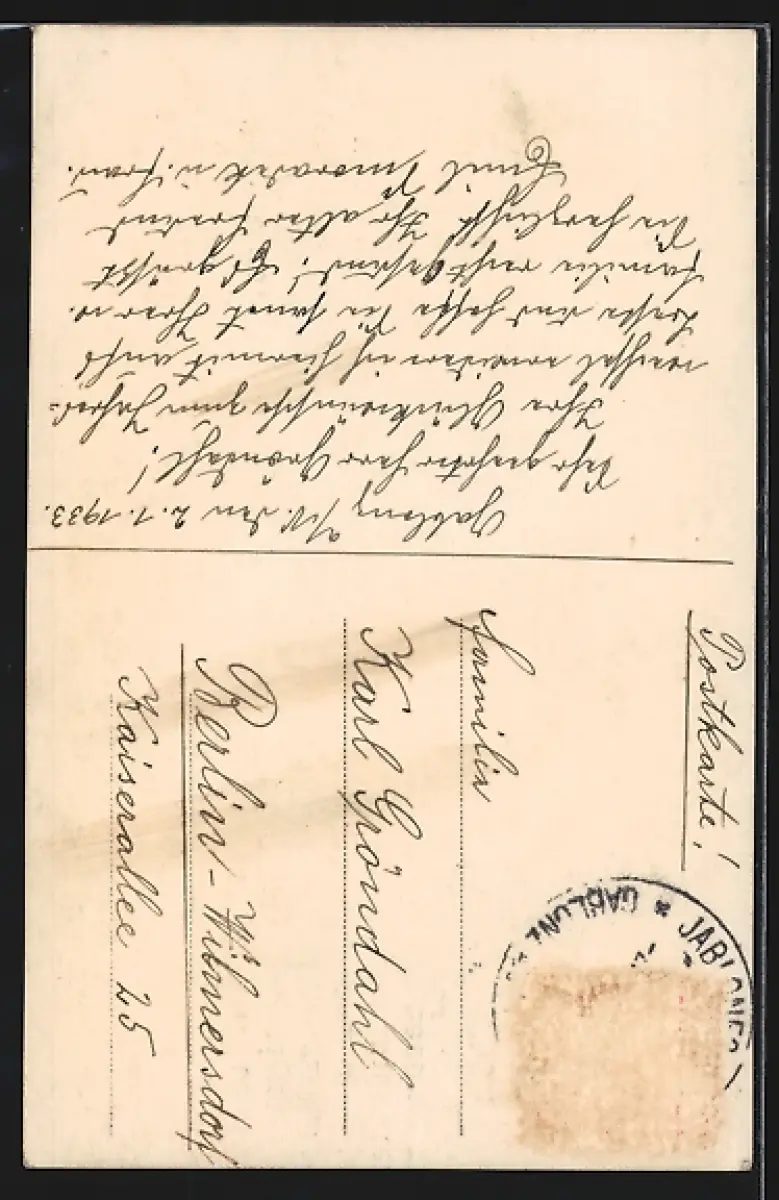 Gablonz a/N. den 2.1.1933.
Sehr geehrter Herr Gröndahl!
Ihre Glückwünsche zum Jahres-
wechsel erwidere ich hiermit aufs
beste und hoffe Sie samt Ihrer w.
Familie recht gesund! Es grüßt
Sie herzlichst Ihr alter Freund
Emil u. Frau.
Postkarte!
Familie
Karl Gröndahl
Berlin-Wilmersdorf
Kaiserallee 25
JABLONEC
GABLONZ